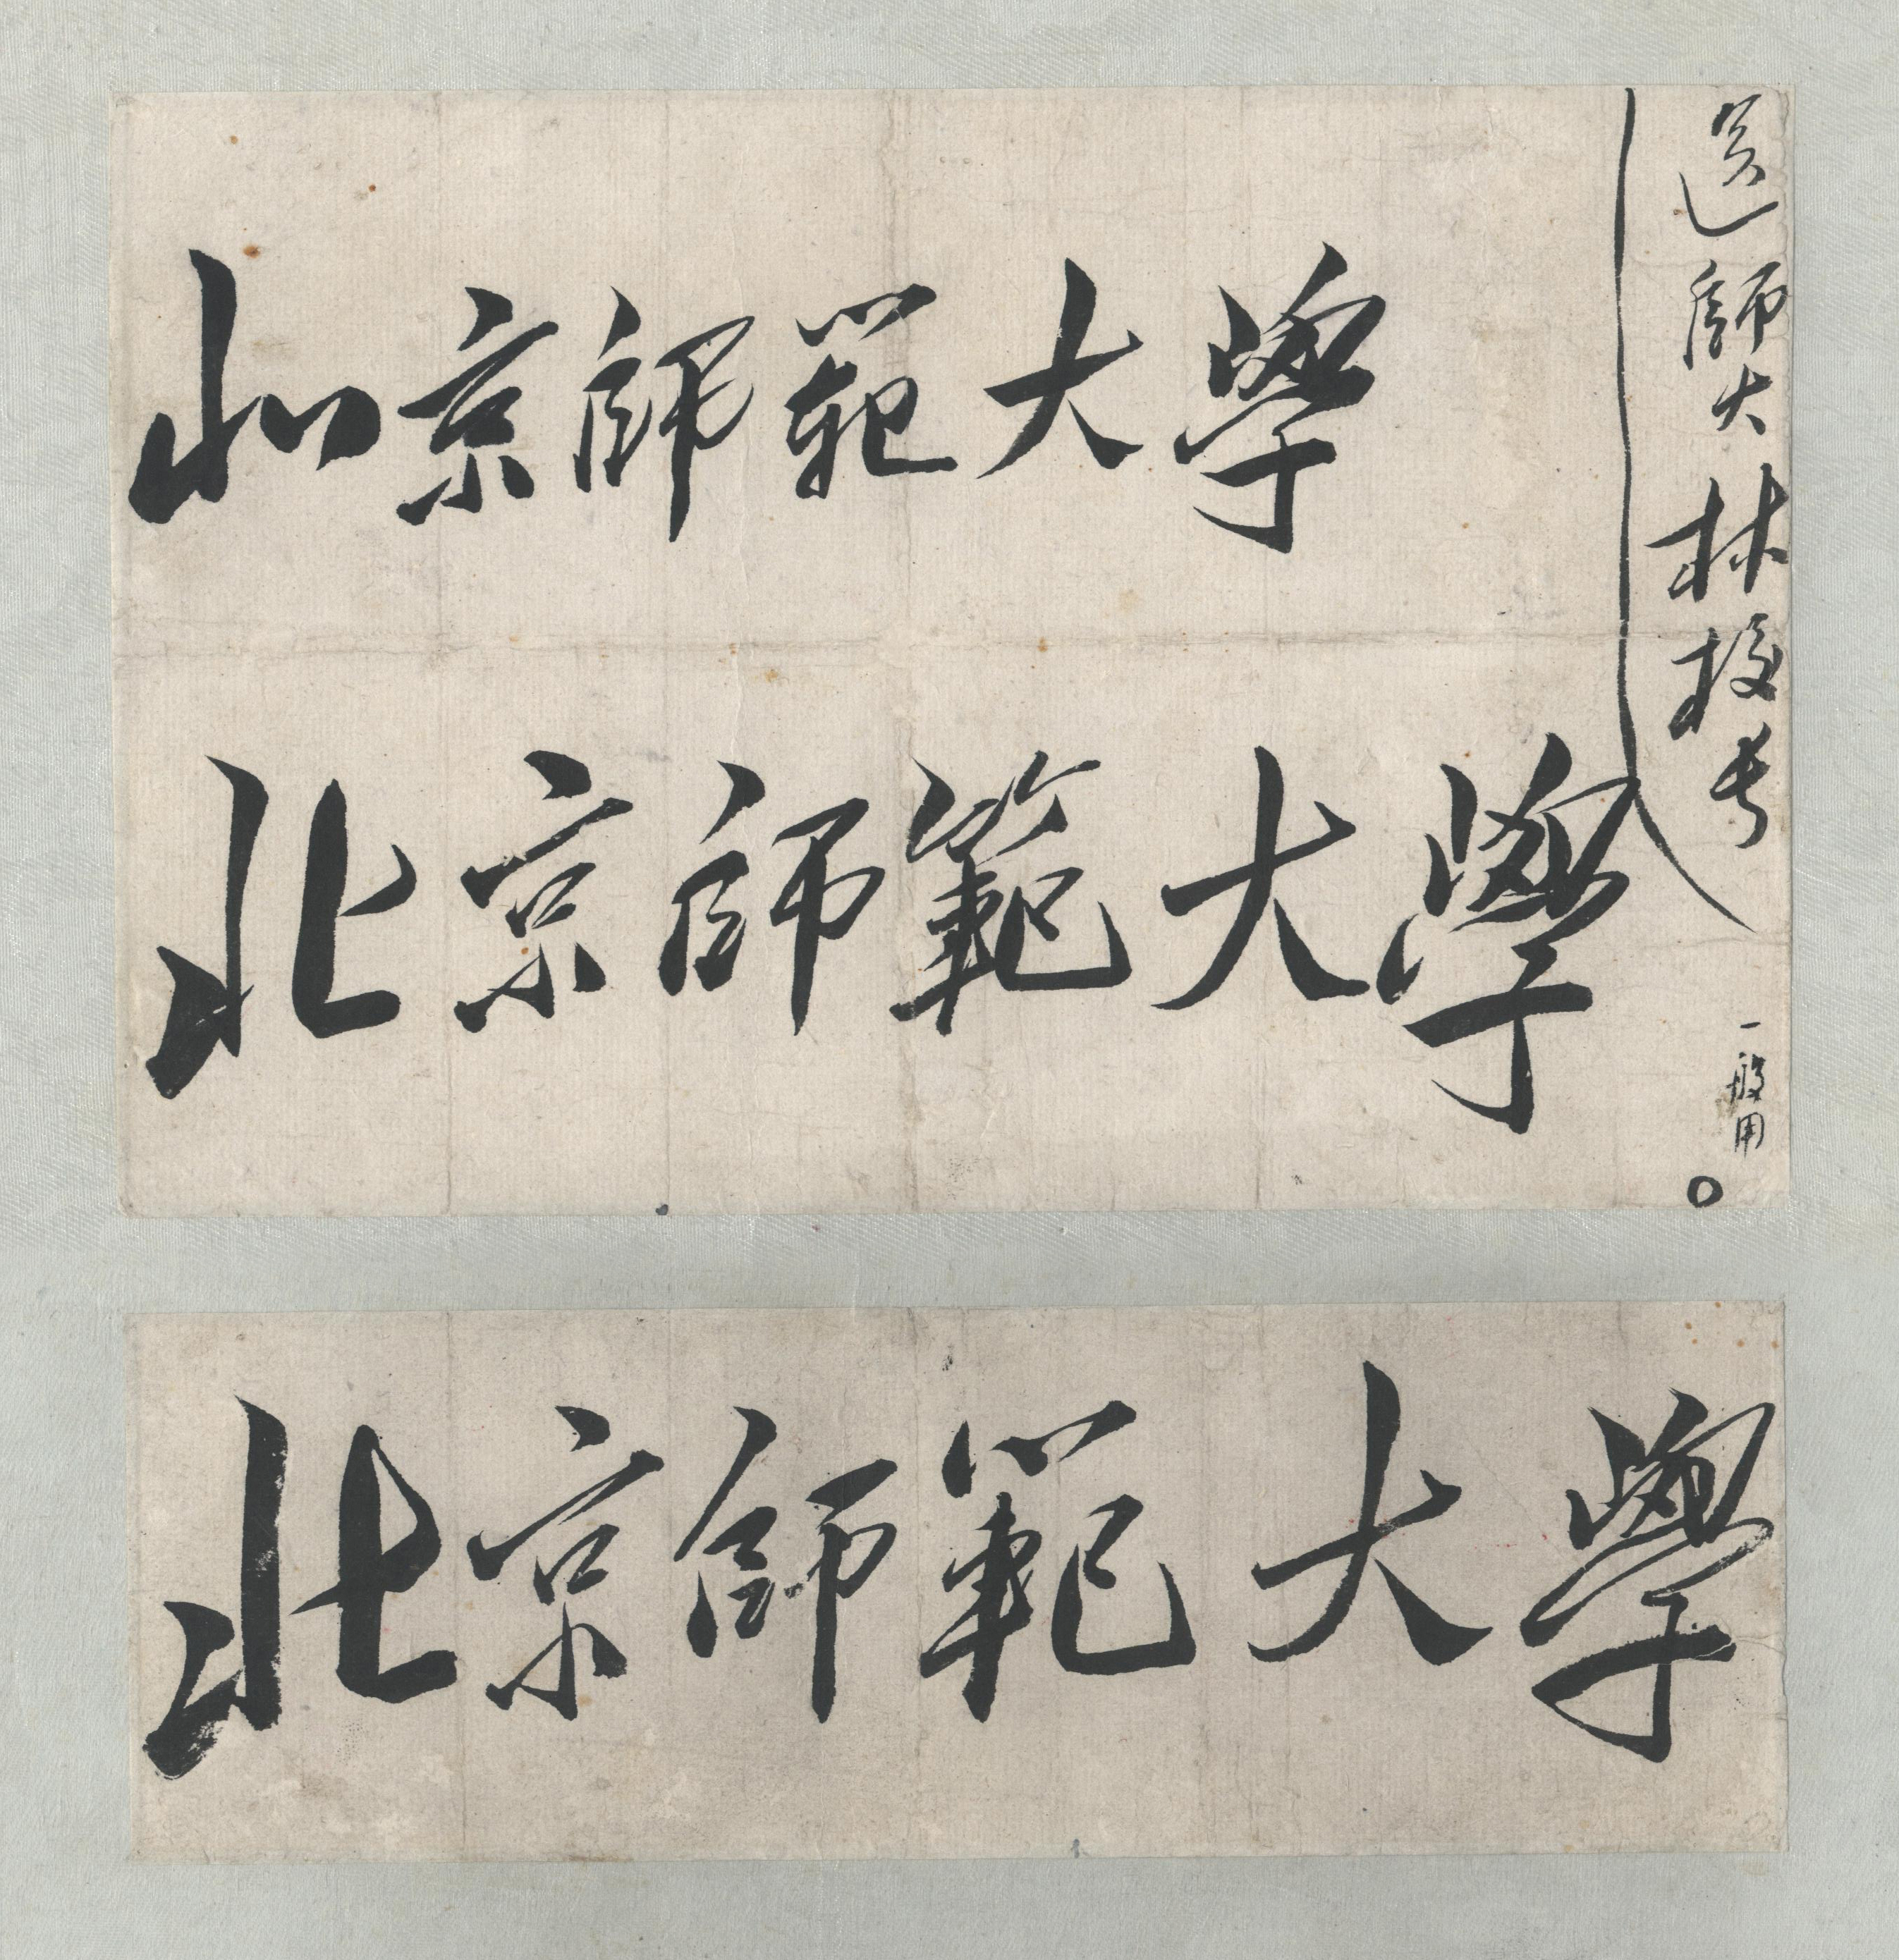 送師大林校长
北京師範大學
北京師範大學
一般用
北京師範大學